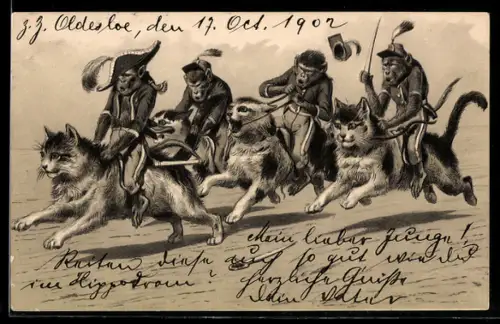 z. Z. Oldesloe, den 17. Oct. 1902
Mein lieber Junge!
Reiten diese auch so gut wie die
im Hippodrom?
herzliche Grüße
Dein Vater